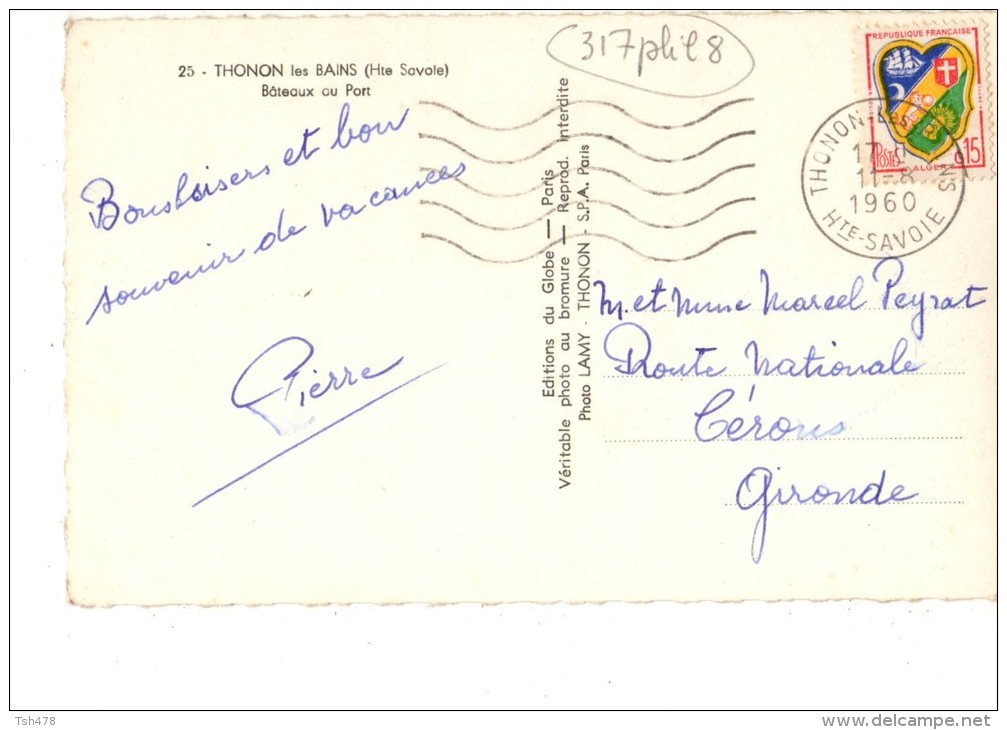 317phil8
25 - THONON les BAINS (Hte Savoie)
Bâteaux au Port
Bons baisers et bon
souvenir de vacances
Pierre
Editions du Globe — Paris
Véritable photo au bromure — Reprod. interdite
Photo LAMY - THONON - S.P.A. Paris
REPUBLIQUE FRANÇAISE
POSTES
ALGER
0,15
THONON-LES
NS
17
11-8
1960
HTE-SAVOIE
M. et Mme Marcel Peyrat
Route Nationale
Cérons
Gironde
Tsh478
www.delcampe.net